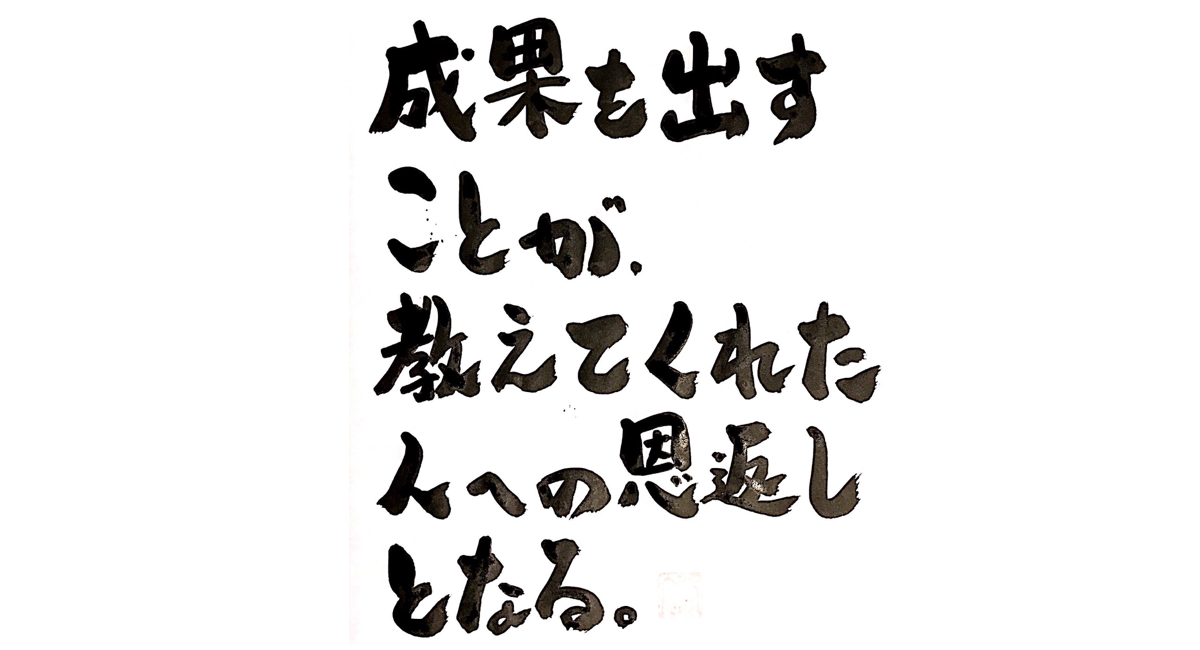 成果を出す
ことが、
教えてくれた
人への恩返し
となる。